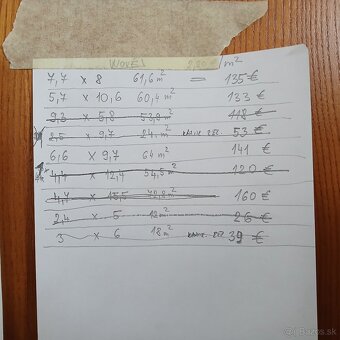 NOVÉJ 2,20 €/m²
7,7 x 8 61,6 m² = 135 €
5,7 x 10,6 60,4 m² 133 €
9,3 x 5,8 53,8 m² 118 €
2,5 x 9,7 24 m² 53 €
6,6 x 9,7 64 m² 141 €
4,4 x 12,4 54,5 m² 120 €
4,7 x 15,5 72,8 m² 160 €
2,4 x 5 12 m² 26 €
3 x 6 18 m² 39 €
Bazos.sk